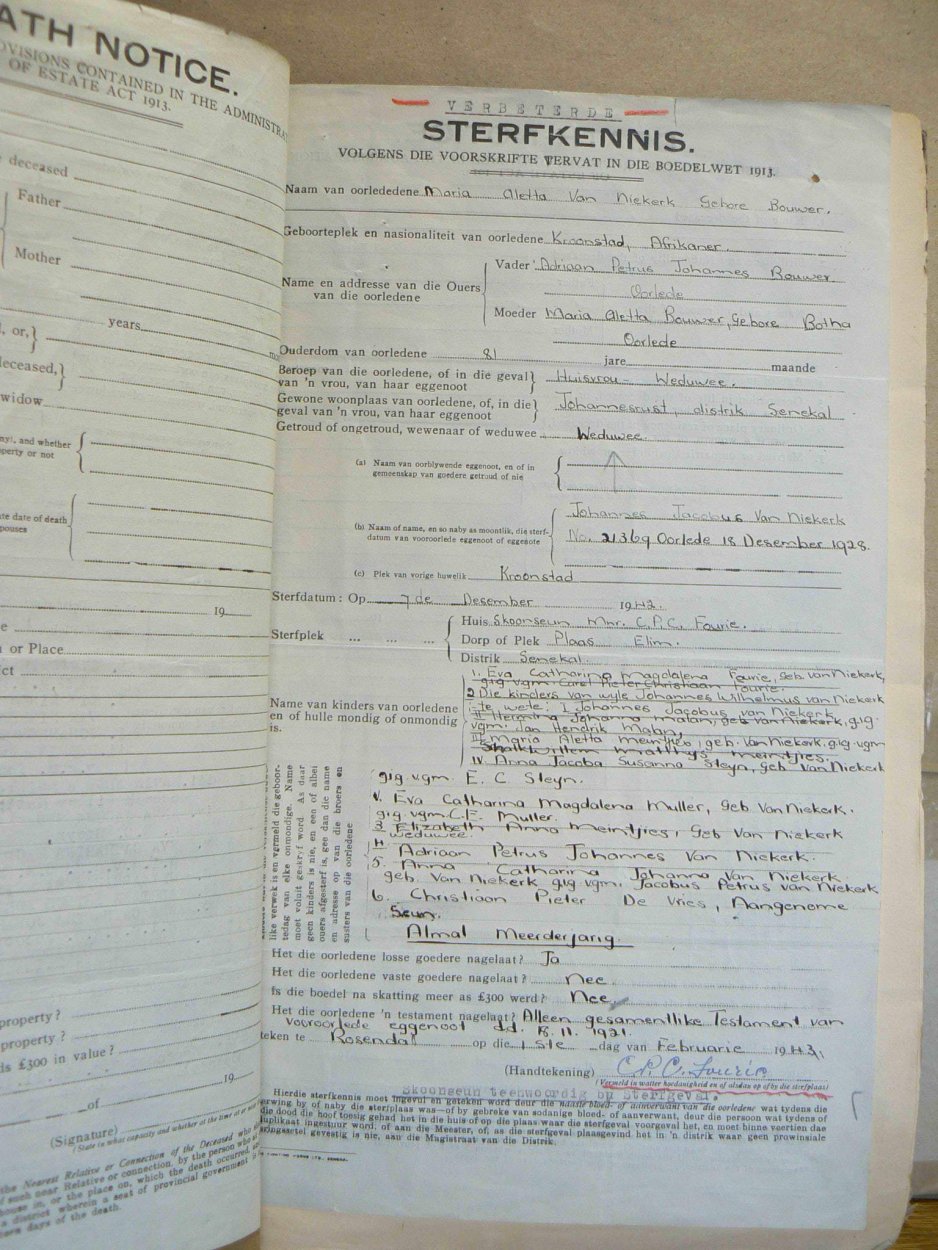 ATH NOTICE.
OVISIONS CONTAINED IN THE ADMINISTRA
OF ESTATE ACT 1913.
deceased
Father
Mother
years
, or,}
deceased,}
widow
any), and whether
perty or not
te date of death
pouses
19
or Place
ct
property ?
property ?
ds £300 in value ?
19
of
(Signature)
(State in what capacity and whether at the time at
the Nearest Relative or Connection of the Deceased who
of such near Relative or connection, by the person who
house in, or the place on, which the death occurred,
a district wherein a seat of provincial government
days of the death.
VERBETERDE
STERFKENNIS.
VOLGENS DIE VOORSKRIFTE VERVAT IN DIE BOEDELWET 1913.
Naam van oorlededene Maria Aletta Van Niekerk Gebore Bouwer.
Geboorteplek en nasionaliteit van oorledene Kroonstad, Afrikaner.
Name en addresse van die Ouers van die oorledene
Vader Adriaan Petrus Johannes Bouwer
Oorlede
Moeder Maria Aletta Bouwer, Gebore Botha
Oorlede
Ouderdom van oorledene 81 jare maande
Beroep van die oorledene, of in die geval van 'n vrou, van haar eggenoot} Huisvrou - Weduwee.
Gewone woonplaas van oorledene, of, in die geval van 'n vrou, van haar eggenoot} Johannesrust, distrik Senekal
Getroud of ongetroud, wewenaar of weduwee Weduwee.
(a) Naam van oorblywende eggenoot, en of in gemeenskap van goedere getroud of nie
(b) Naam of name, en so naby as moontlik, die sterfdatum van vooroorlede eggenoot of eggenote
Johannes Jacobus Van Niekerk
No. 21369 Oorlede 18 Desember 1928.
(c) Plek van vorige huwelik Kroonstad
Sterfdatum : Op 7de Desember 1942.
Sterfplek ... ... ...
Huis Skoonseun Mnr. C.P.C. Fourie.
Dorp of Plek Plaas Elim.
Distrik Senekal.
Name van kinders van oorledene en of hulle mondig of onmondig is.
1. Eva Catharina Magdalena Fourie, geb. van Niekerk,
gig. vgm. Carel Pieter Christiaan Fourie.
2 Die kinders van wyle Johannes Wilhelmus van Niekerk
te wete: I Johannes Jacobus van Niekerk
II Johanna Malan, geb van Niekerk, gig.
vgm. Jan Hendrik Malan,
III Maria Aletta Meintjies, geb. Van Niekerk, gig. vgm
Schalk Willem Matthys Meintjies.
IV. Anna Jacoba Susanna Steyn, geb van Niekerk
gig. vgm. E. C Steyn.
V. Eva Catharina Magdalena Muller, Geb Van Niekerk.
gig. vgm. C.E. Muller.
3. Elizabeth Anna Meintjies, Geb Van Niekerk
weduwee.
4. Adriaan Petrus Johannes Van Niekerk.
5. Anna Catharina Johanna Van Niekerk
geb. Van Niekerk gig vgm. Jacobus Petrus van Niekerk
6. Christiaan Pieter De Vries, Aangenome
Seun.
Almal Meerderjarig.
like verwek is en vermeld die geboor-
tedag van elke onmondige. Name
moet voluit geskryf word. As daar
geen kinders is nie, en een of albei
ouers afgesterf is, gee dan die name
en adresse op van die broers en
susters van die oorledene
Het die oorledene losse goedere nagelaat? Ja
Het die oorledene vaste goedere nagelaat? nee
Is die boedel na skatting meer as £300 werd? Nee
Het die oorledene 'n testament nagelaat? Alleen gesamentlike Testament van
vooroorlede eggenoot d.d. 18.11.1921.
teken te Rosendal op die 1ste dag van Februarie 1943
(Handtekening) C.P.C. Fourie
(Vermeld in watter hoedanigheid en of al dan op of by die sterfplaas)
Skoonseun teenwoordig by Sterfgeval.
Hierdie sterfkennis moet ingevul en geteken word deur die naaste bloed- of aanverwant van die oorledene wat tydens die
erwing by of naby die sterfplaas was—of by gebreke van sodanige bloed- of aanverwant, deur die persoon wat tydens of
die dood die hoof toesig gehad het in die huis of op die plaas waar die sterfgeval voorgeval het, en moet binne veertien dae
duplikaat ingestuur word, of aan die Meester, of, as die sterfgeval plaasgevind het in 'n distrik waar geen provinsiale
ringssetel gevestig is nie, aan die Magistraat van die Distrik.